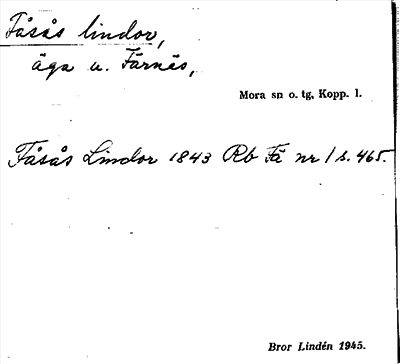 Fåsås lindor,
äga u. Färnäs,
Mora sn o. tg, Kopp. l.
Fåsås Lindor 1843 Rb Fä nr 1 s. 465.
Bror Lindén 1945.